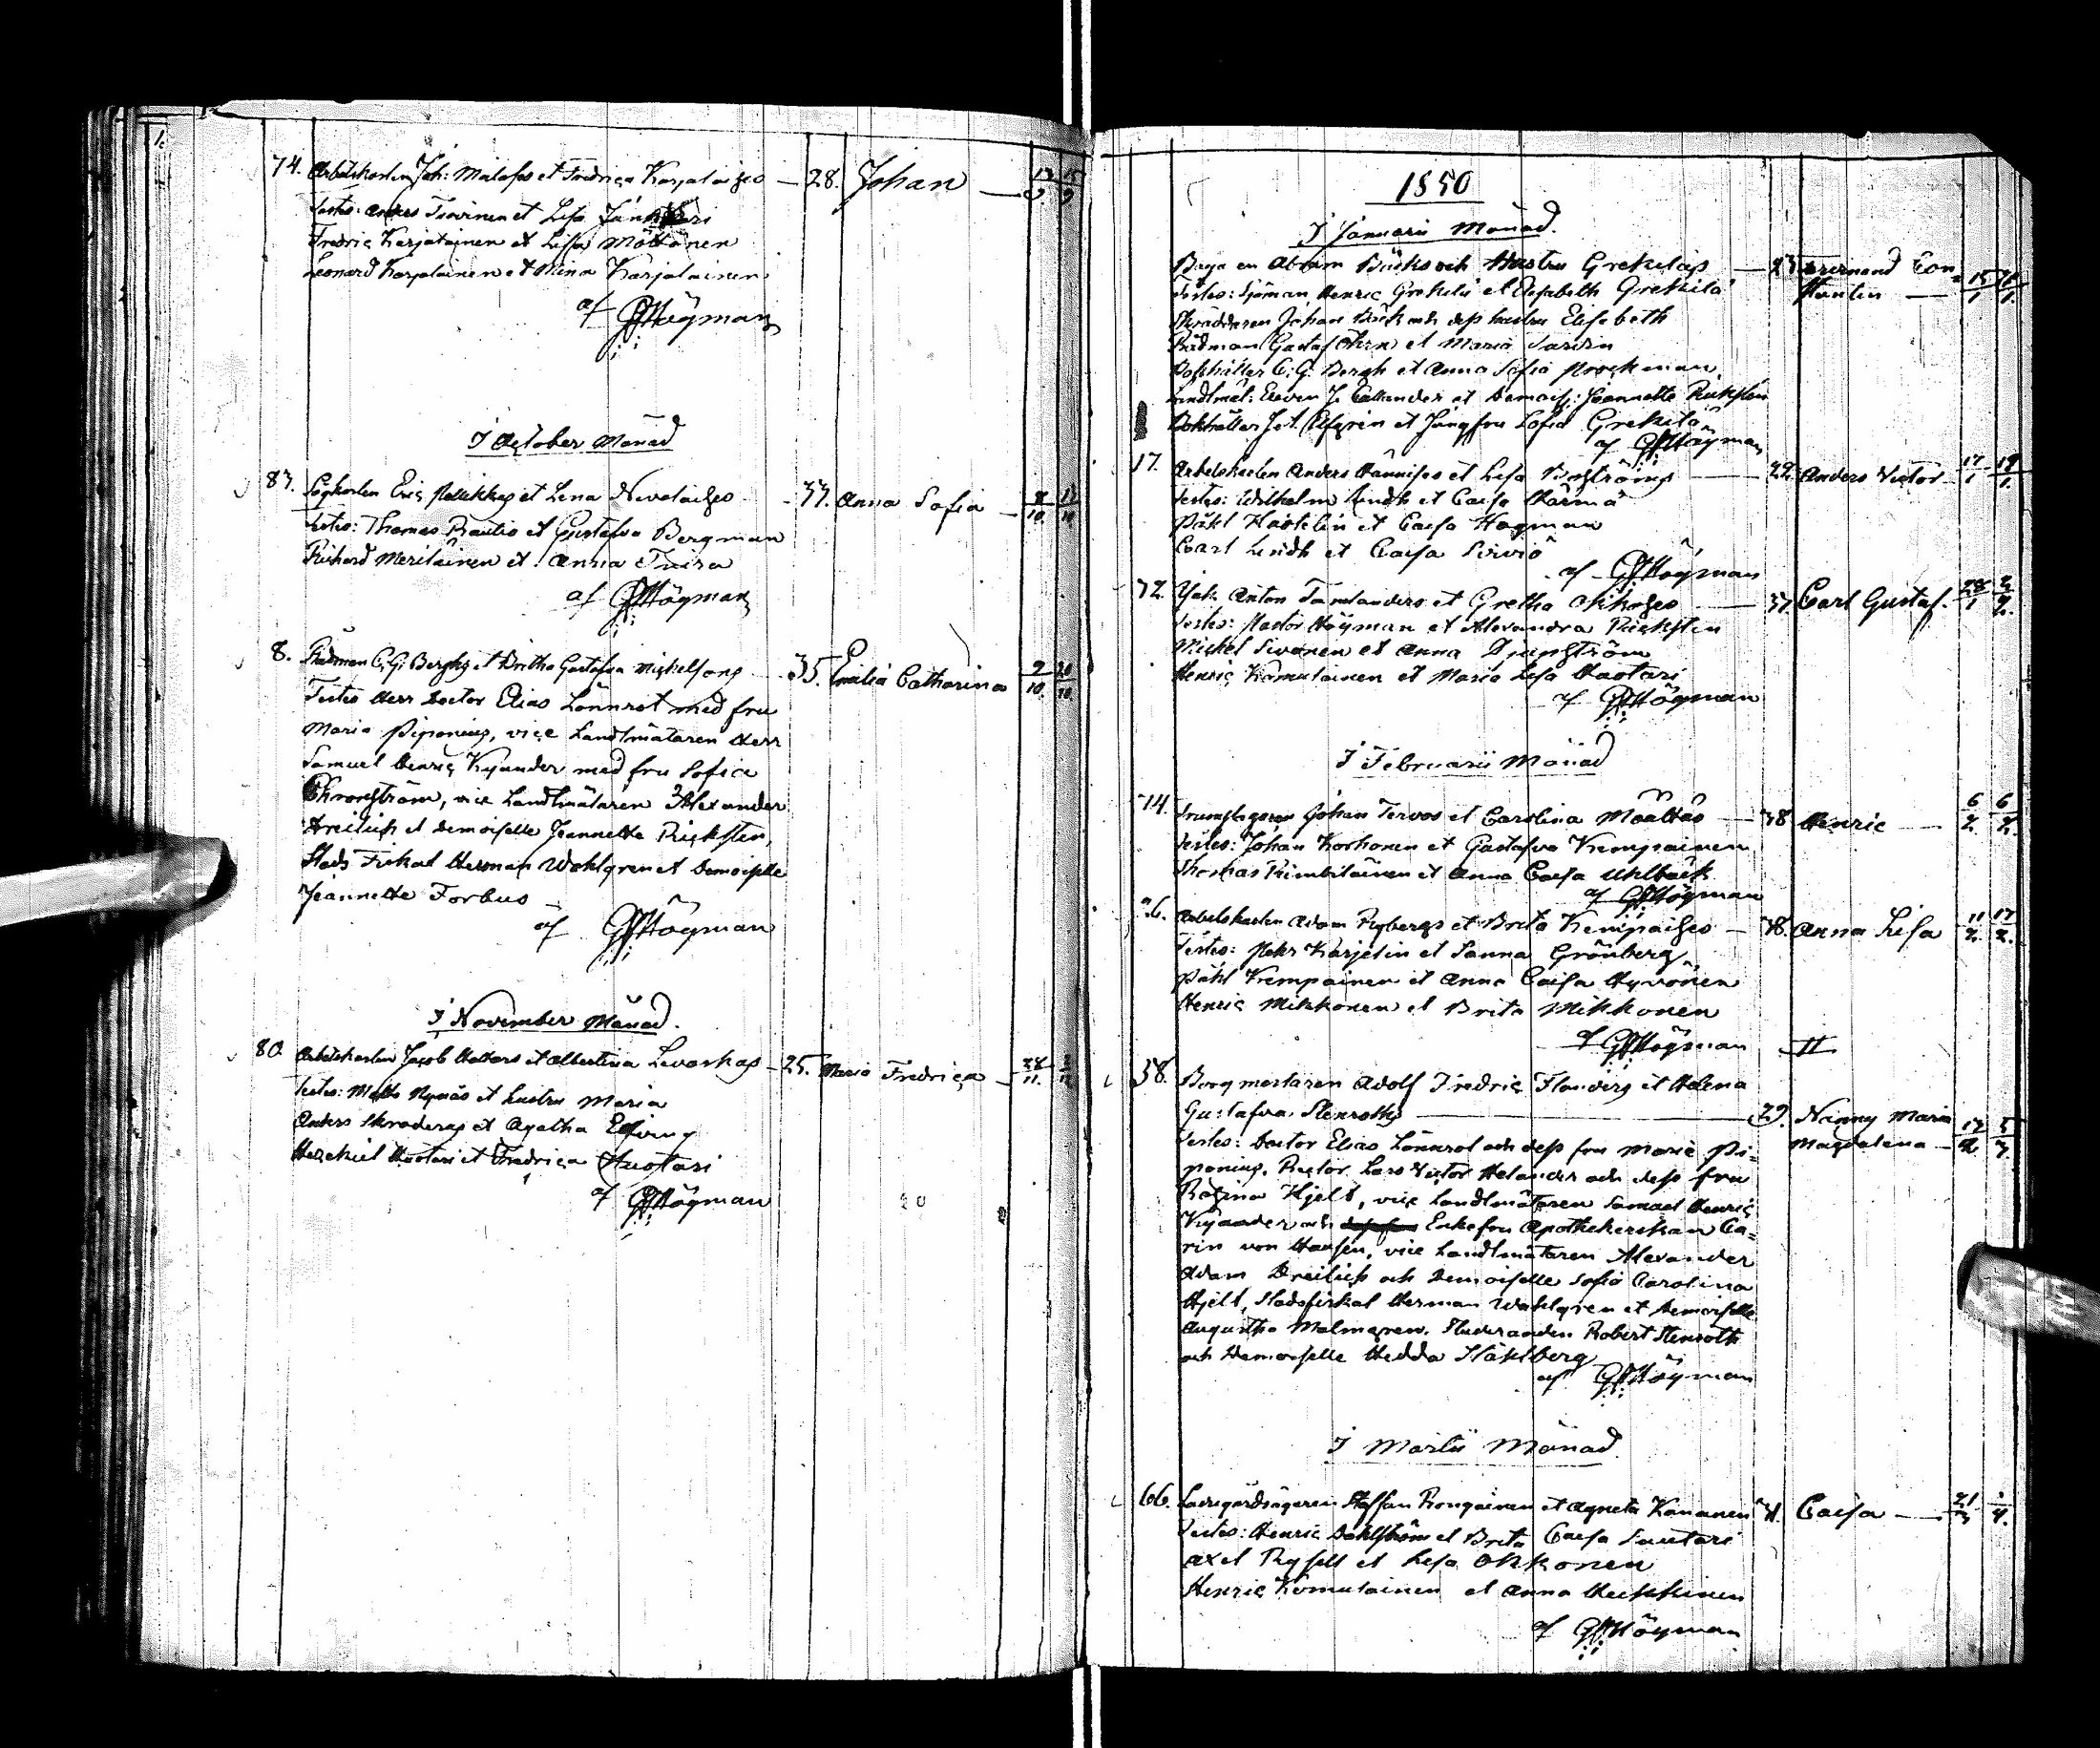 74. Arbetskarlen Joh: Malafos et Fredrica Karjalaises — 28. Johan — 13/9 15/9
Testes: Anders Tiovinen et Lisa
Fredric Karjalainen et Lisa Möttönen
Leonard Karjalainen et Mina Karjalainen
af GJHögman
I October Månad
83. Eric et Lena Nevalaises — 33. Anna Sofia — 8/10
Testes: Thomas Rautio et Gustafva Bergman
Richard Meriläinen et Anna Tuira
af GJHögman
8. Rådman C. G. Berghs et Britha Gustafva Michelsons — 35. Emilia Catharina 9/10 20/10
Testes Herr Doctor Elias Lönnrot med fru
Maria Piponius, vice Landtmätaren Herr
Samuel Henric Kyander med fru Sofia
vice Landtmätaren Alexander
et Demoiselle Jeannette Ricksten,
Stads Fiskal Herman Wahlgren et Demoiselle
Jeannette Forbus
af GJHögman
I November Månad.
80. Arbetskarlen Jacob et Albertina Levoskas — 25. Maria Fredrica — 28/11.
Testes: Matts Nymäs et hustru Maria
Anders et Agatha Elfving
Hezekiel Huotari et Fredrica Huotari
af GJHögman
1850
I Januarii Månad.
Abram Bäcks och Hustru Grekeläs — 23 Con=
Testes: Sjöman Henric Grekelä et Elisabeth Grekelä
stantin — 15/1 16/1
Skräddaren Johan Bäck och dess hustru Elisabeth
Rådman Gustaf et Maria
Bokhåller C. G. Bergh et Anna Sofia
Landtmät: Eleven J. Callander et Demois: Jeannette Ricksten
Bokhåller J. A. Elfgrén et Jungfru Sofia Grekelä
af GJHögman
17. Arbetskarlen Anders et Lisa — 22. Anders Victor 17/1 19/1.
Testes: Wilhelm Lindh et Caisa Härmä
Påhl et Caisa Hagman
Carl Lindh et Caisa Sirviö
af GJHögman
32. Anton et Gretha — 37. Carl Gustaf. 28/1 2/2.
Testes: Pastor Högman et Alexandra Ricksten
Mickel Sivonen et Anna
Henric Komulainen et Maria Lisa Huotari
af GJHögman
I Februarii Månad
74. Johan Tervos et Carolina — 38 Henric — 6/2. 6/2.
Testes: Johan Korhonen et Gustafva Kempainen
Thomas et Anna Caisa Uhlbäck
af GJHögman
Arbetskarlen Adam Rybergs et Brita Kempaises — 38. Anna Lisa 11/2. 17/2.
Testes: Pehr Karjelin et Sanna Grönberg
Påhl Kempainen et Anna Caisa Hyvönen
Henric Mikkonen et Brita Mikkonen
af GJHögman
38. Borgmestaren Adolf Fredric Flanders et Helena
Gustafva Stenroths — 29. Nanny Maria
Testes: Doctor Elias Lönnrot och dess fru Maria Pi=
Magdalena — 17/2
ponius. Rector Lars Victor Helander och dess fru
Regina Hjelt, vice Landtmätaren Samuel Henric
Kyander och Enkefru Apothekerskan Ca=
rin von Hausen, vice Landtmätaren Alexander
Adam och Demoiselle Sofia Carolina
Hjelt, Stadsfiskal Herman Wahlgren et Demoiselle
Augusta Malmgren. Studeranden Robert Stenroth
och Demoiselle Hedda Ståhlberg
af GJHögman
I Martii Månad
66. Staffan Rongainen et Agneta Kananen Caisa — 31/3
Testes: Henric Dahlström et Brita Caisa Sautari
Axel et Lisa Okkonen
Henric Komulainen et Anna Heikkinen
af GJHögman